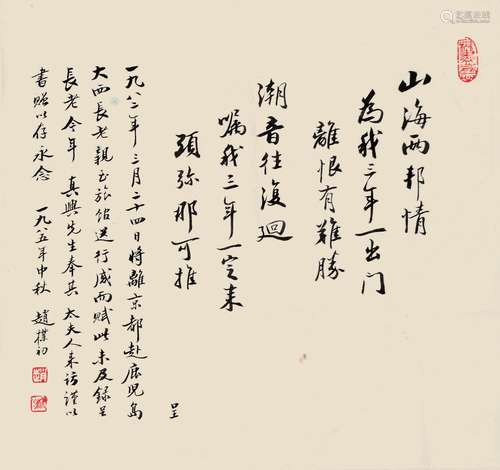 山海两邦情
為我三年一出门
離恨有難勝
潮音往復廻
嘱我三年一定来
須弥那可推
呈
一九八二年三月二十四日将離京都赴鹿児島
大西長老親至旅館送行感而賦此未及録呈
長老今年 真興先生奉其 太夫人来訪謹以
書贈以存永念 一九八五年中秋 趙樸初